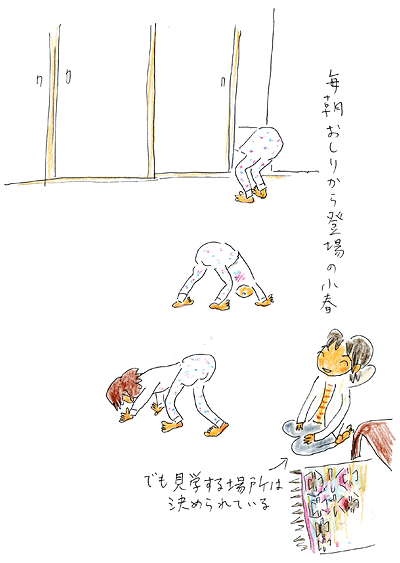 毎朝おしりから登場の小春
でも見学する場所は
決められている